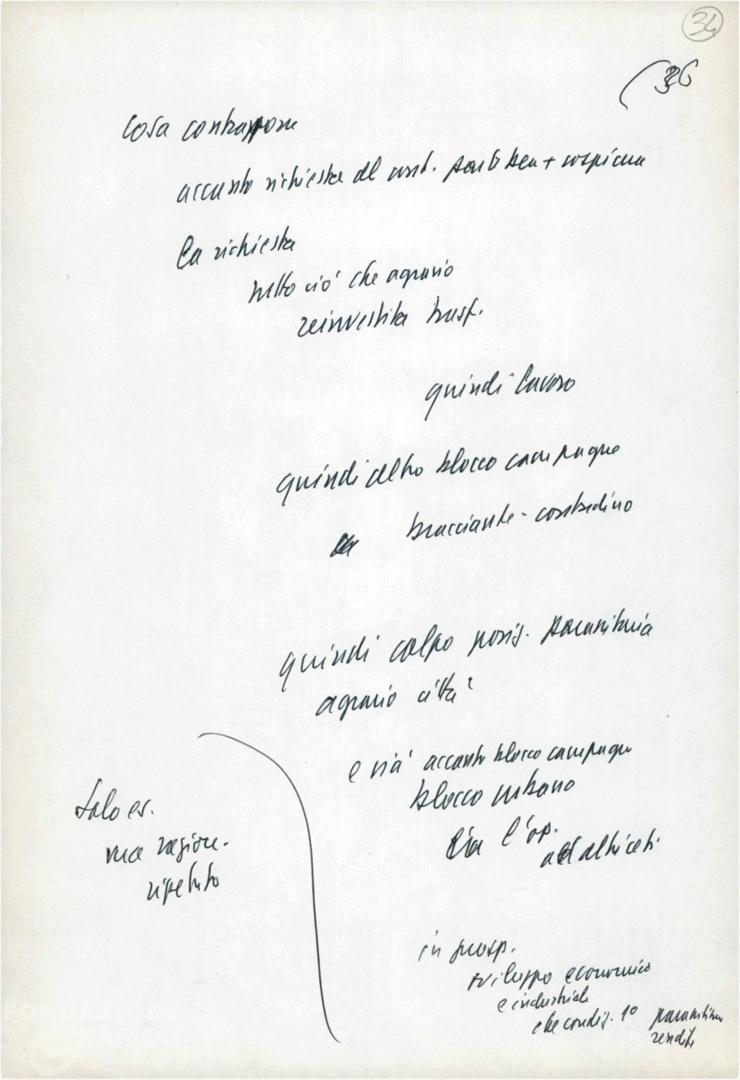 34
36
Cosa contrapporre
accanto richiesta del cont. ben + cospicua
la richiesta
tutto ciò che agrario
reinvestita trasf.
quindi lavoro
quindi altro blocco campagne
bracciante - contadino
quindi colpo posiz. parassitaria
agrario città
e già accanto blocco campagne
blocco urbano
l'op.
ad altri ceti
Solo es.
ma ragion.
ripetuto
in prosp.
sviluppo economico
e industriale
che condiz. 1º parassitismo
rendite
FONDAZIONE